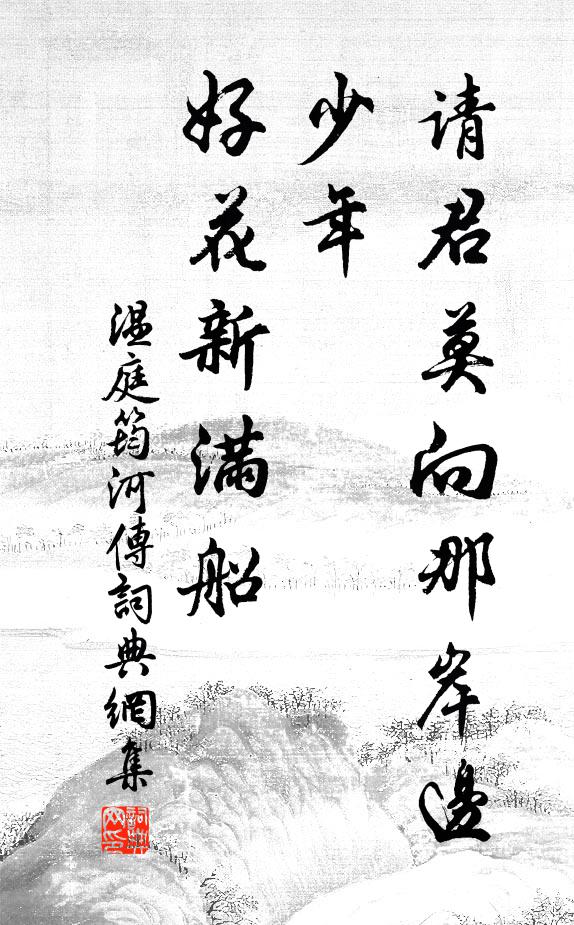 请君莫向那岸邊
少年
好花新滿船
溫庭筠河傳詞典網集